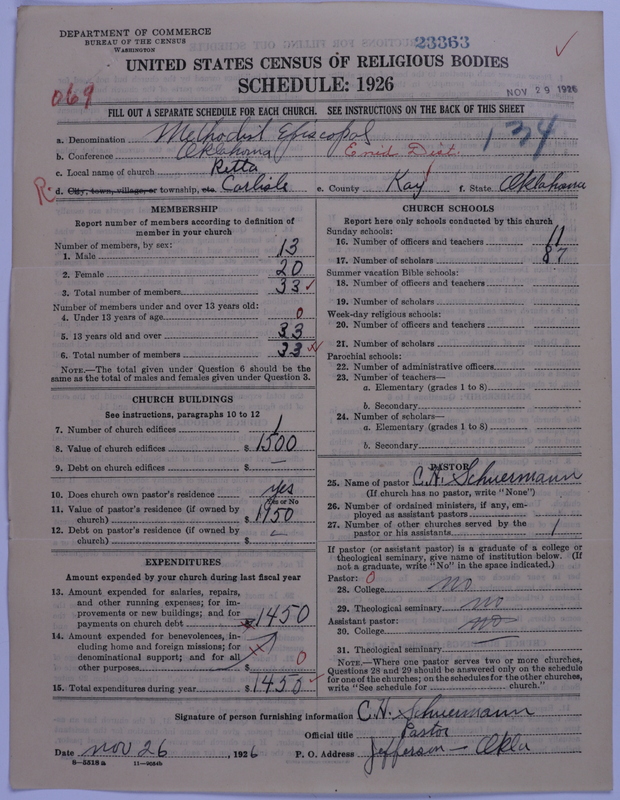 DEPARTMENT OF COMMERCE
BUREAU OF THE CENSUS
WASHINGTON
23363
UNITED STATES CENSUS OF RELIGIOUS BODIES
SCHEDULE: 1926
NOV 29 1926
069
FILL OUT A SEPARATE SCHEDULE FOR EACH CHURCH. SEE INSTRUCTIONS ON THE BACK OF THIS SHEET
a. Denomination Methodist Episcopal 134
b. Conference Oklahoma Enid Dist.
c. Local name of church Retta
R. d. City, town, village, or township, etc. Carlisle e. County Kay f. State Oklahoma
MEMBERSHIP
Report number of members according to definition of
member in your church
Number of members, by sex:
1. Male 13
2. Female 20
3. Total number of members 33
Number of members under and over 13 years old:
4. Under 13 years of age 0
5. 13 years old and over 33
6. Total number of members 33
NOTE.—The total given under Question 6 should be the
same as the total of males and females given under Question 3.
CHURCH BUILDINGS
See instructions, paragraphs 10 to 12
7. Number of church edifices 1
8. Value of church edifices $ 1500
9. Debt on church edifices $ —
10. Does church own pastor's residence yes
Yes or No
11. Value of pastor's residence (if owned by
church) $ 1950
12. Debt on pastor's residence (if owned by
church) $ —
EXPENDITURES
Amount expended by your church during last fiscal year
13. Amount expended for salaries, repairs,
and other running expenses; for im-
provements or new buildings; and for
payments on church debt $ 1450
14. Amount expended for benevolences, in-
cluding home and foreign missions; for
denominational support; and for all
other purposes $ 0
15. Total expenditures during year $ 1450
CHURCH SCHOOLS
Report here only schools conducted by this church
Sunday schools:
16. Number of officers and teachers 11
17. Number of scholars 87
Summer vacation Bible schools:
18. Number of officers and teachers
19. Number of scholars
Week-day religious schools:
20. Number of officers and teachers
21. Number of scholars
Parochial schools:
22. Number of administrative officers
23. Number of teachers—
a. Elementary (grades 1 to 8)
b. Secondary
24. Number of scholars—
a. Elementary (grades 1 to 8)
b. Secondary
PASTOR
25. Name of pastor C. H. Schuermann
(If church has no pastor, write "None")
26. Number of ordained ministers, if any, em-
ployed as assistant pastors
27. Number of other churches served by the
pastor or his assistants 1
If pastor (or assistant pastor) is a graduate of a college or
theological seminary, give name of institution below. (If
not a graduate, write "No" in the space indicated.)
Pastor: 0
28. College no
29. Theological seminary no
Assistant pastor:
30. College no
31. Theological seminary
NOTE.—Where one pastor serves two or more churches,
Questions 28 and 29 should be answered only on the schedule
for one of the churches; on the schedules for the other churches,
write "See schedule for church."
Signature of person furnishing information C. H. Schuermann
Official title Pastor
Date Nov 26, 1926 P. O. Address Jefferson — Okla
8—5518 a 11—9054b